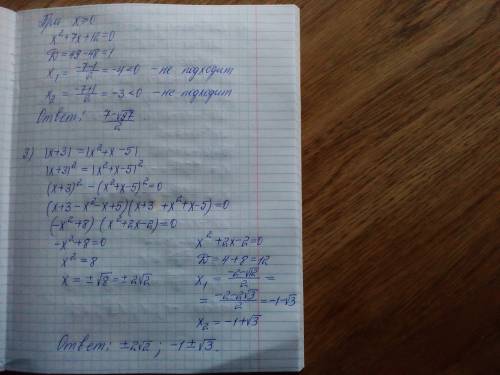 При x>0
x²+7x+12=0
D=49-48=1
x₁ = (-7-1)/2 = -4<0 - не подходит
x₂ = (-7+1)/2 = -3<0 - не подходит
Ответ: (7-√97)/2
3) |x+3| = |x²+x-5|
|x+3|² = |x²+x-5|²
(x+3)² - (x²+x-5)²=0
(x+3-x²-x+5)(x+3+x²+x-5)=0
(-x²+8) (x²+2x-2)=0
-x²+8=0
x²=8
x=±√8=±2√2
x²+2x-2=0
D=4+8=12
x₁ = (-2-√12)/2 =
= (-2-2√3)/2 = -1-√3
x₂ = -1+√3
Ответ: ±2√2; -1±√3.